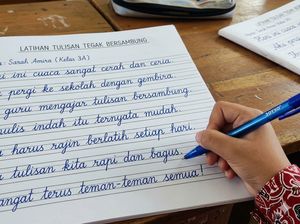 LATIHAN TULISAN TEGAK BERSAMBUNG
: Sarah Amira (Kelas 3A)
ini cuaca sangat cerah dan ceria
pergi ke sekolah dengan gembira.
guru mengajar tulisan bersambung.
ulis indah itu ternyata mudah.
harus rajin berlatih setiap hari.
tulisan kita rapi dan bagus.
angat terus teman-teman semua!